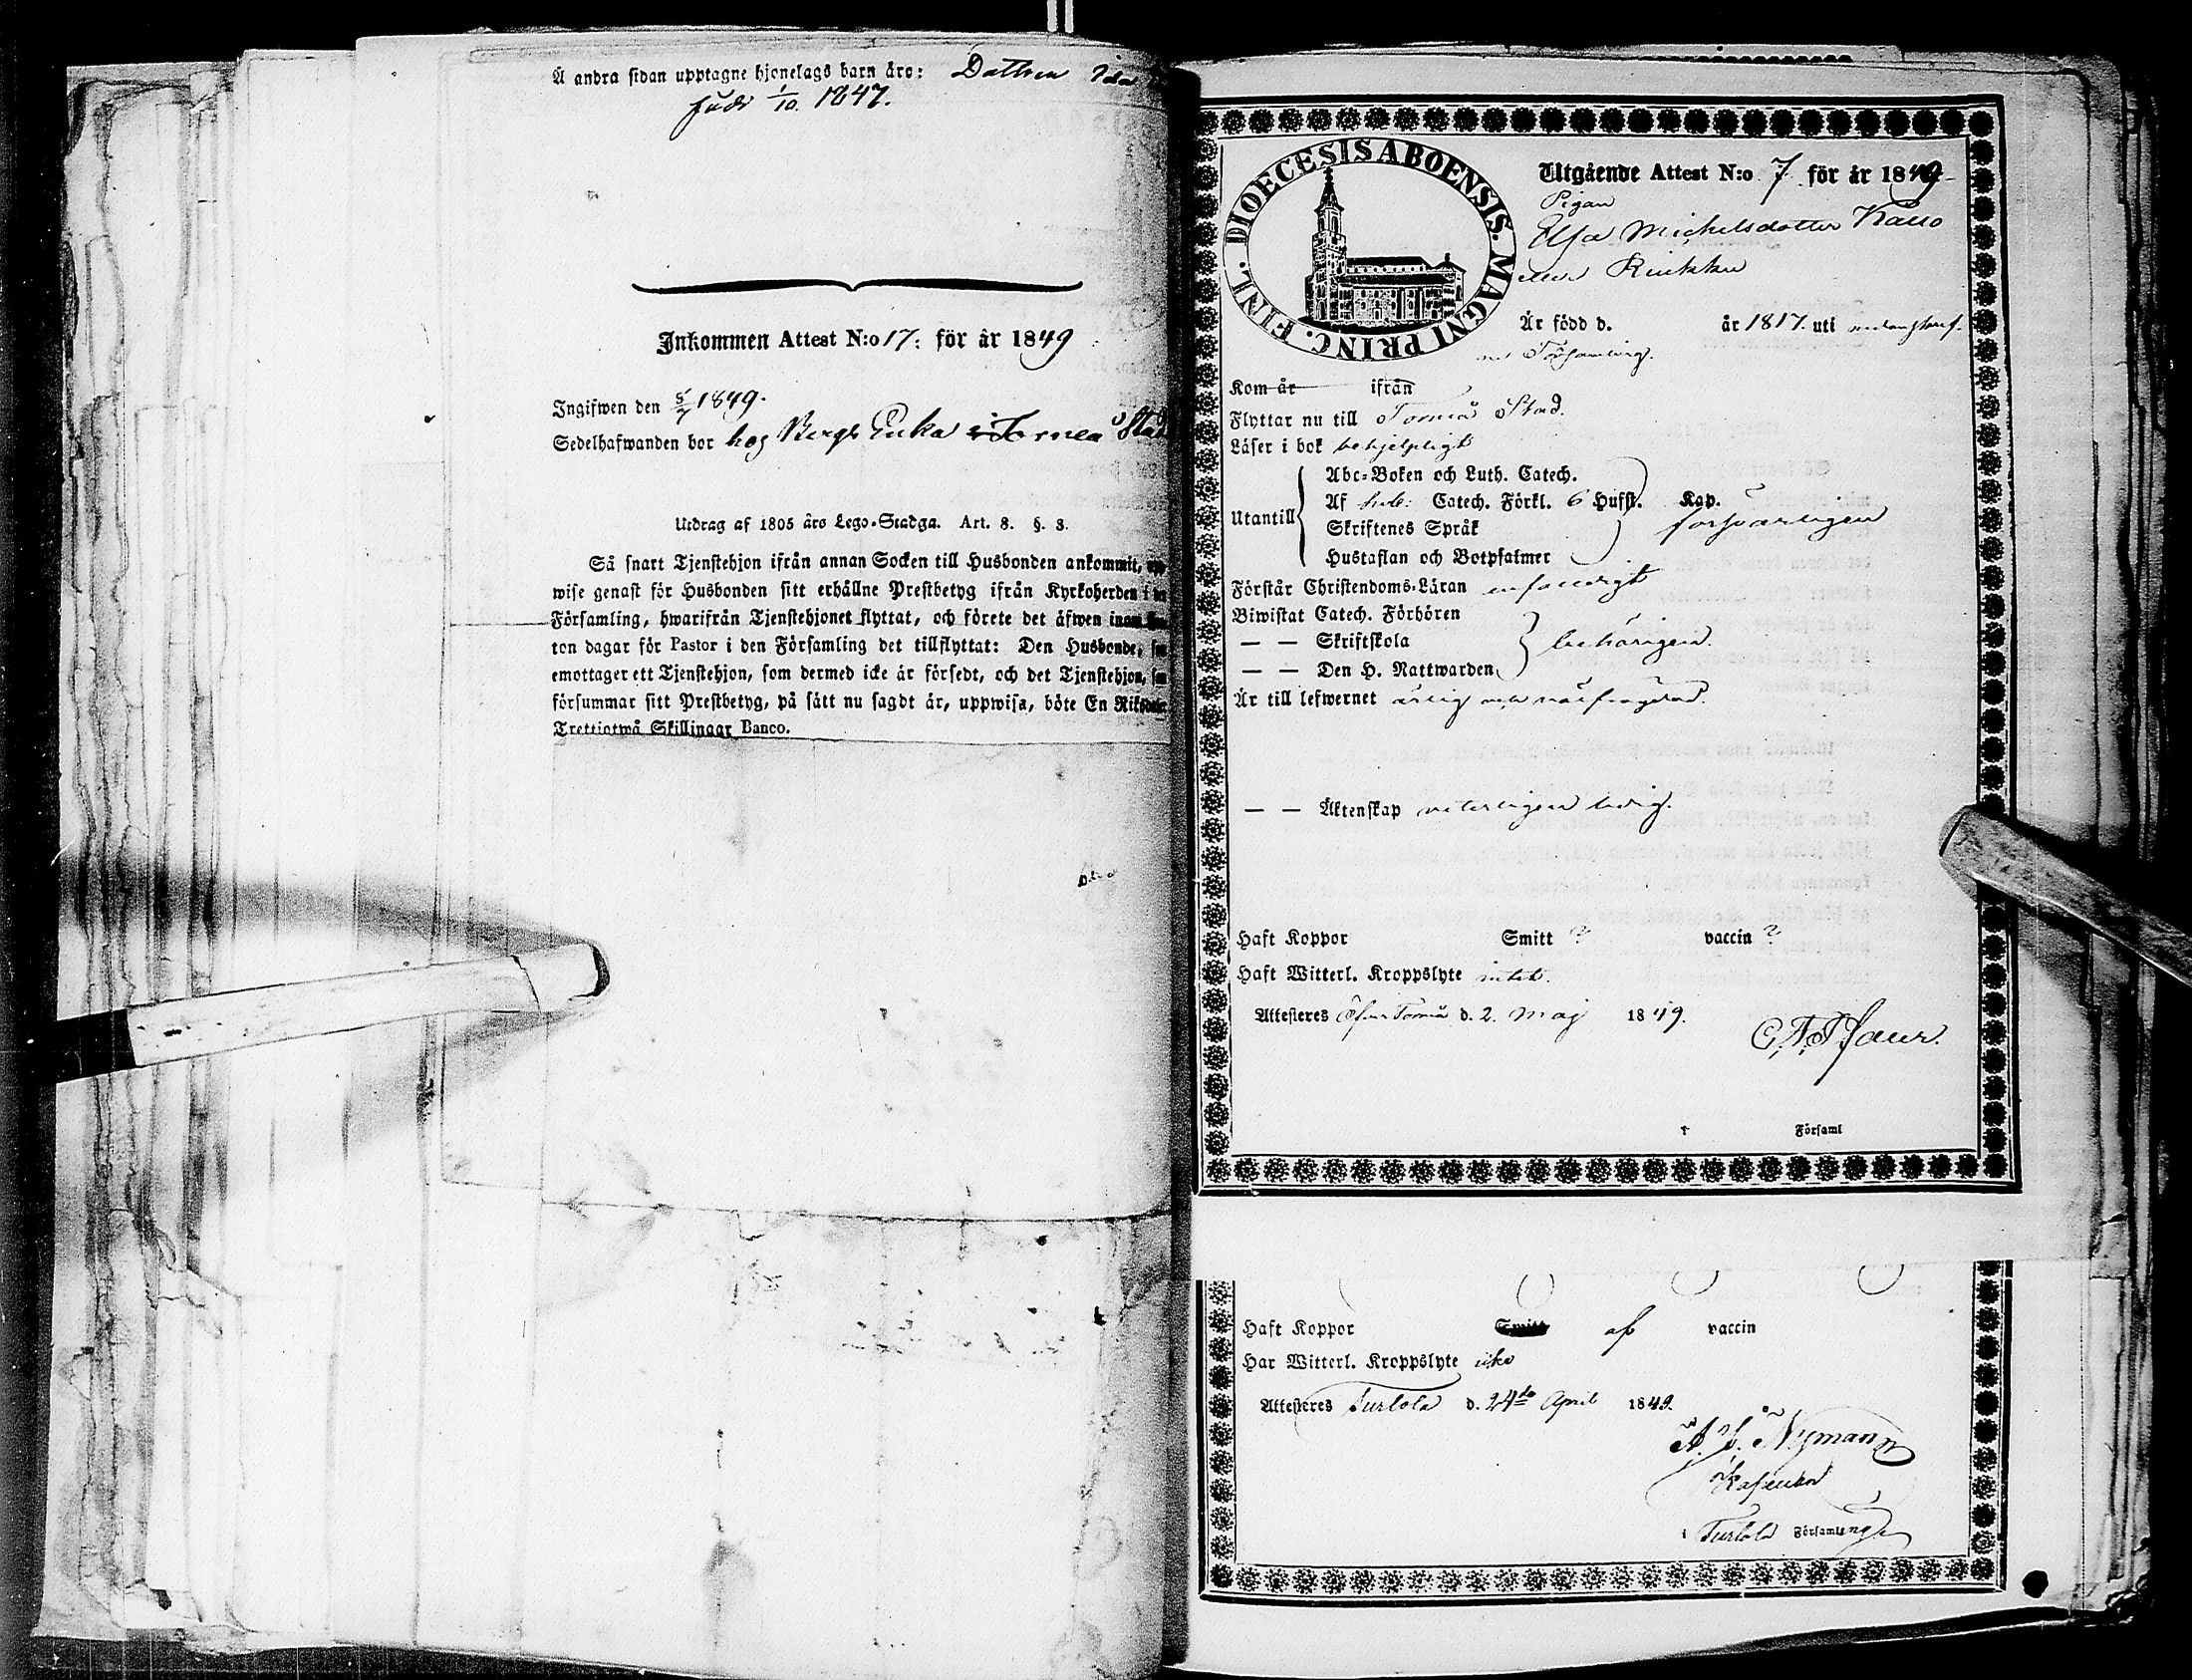 Å andra sidan upptagne hjonelags barn äro: Dottren Ida
född 1/10. 1847.
Inkommen Attest N:o 17: för år 1849
Ingifwen den 5/7 1849.
Sedelhafwanden bor hos Bergs Enka i Torneå Stad
Utdrag af 1805 års Lego-Stadga. Art. 8. §. 3.
Så snart Tjenstehjon ifrån annan Socken till Husbonden ankommit, upp-
wise genast för Husbonden sitt erhållne Prestbetyg ifrån Kyrkoherden i den
Församling, hwarifrån Tjenstehjonet flyttat, och förete det äfwen inom
ton dagar för Pastor i den Församling det tillflyttat: Den Husbonde, som
emottager ett Tjenstehjon, som dermed icke är försedt, och det Tjenstehjon, som
försummar sitt Prestbetyg, på sätt nu sagdt är, uppwisa, böte En Riksdaler
Trettiotwå Skillingar Banco.
DIOECESIS ABOENSIS. MAGNI PRINC. FINL.
Utgående Attest N:o 7 för år 1849
Pigan
Elsa Michelsdotter Kallo
eller Rinkku
Är född d. år 1817. uti nedanskrif-
ne Församling.
Kom år ifrån
Flyttar nu till Torneå Stad.
Läser i bok behjelpligt
Abc-Boken och Luth. Catech.
Utantill Af Catech. Förkl. 6 Hufst. Kap. försvarligen
Skriftenes Språk
Hustaflan och Botpsalmer
Förstår Christendoms-Läran enfaldigt
Biwistat Catech. Förhören
— — Skriftskola behörigen.
— — Den H. Nattwarden
Är till lefwernet ärlig och oåfrågdad.
— — Äktenskap veterligen ledig.
Haft Koppor Smitt ? vaccin ?
Haft Witterl. Kroppslyte intet.
Attesteres Öfver Torneå d. 2. Maj 1849.
i Församl
Haft Koppor Smitt af vaccin
Har Witterl. Kroppslyte icke
Attesteres Turtola d. 24de April 1849.
Nymann
Turtola Församlings